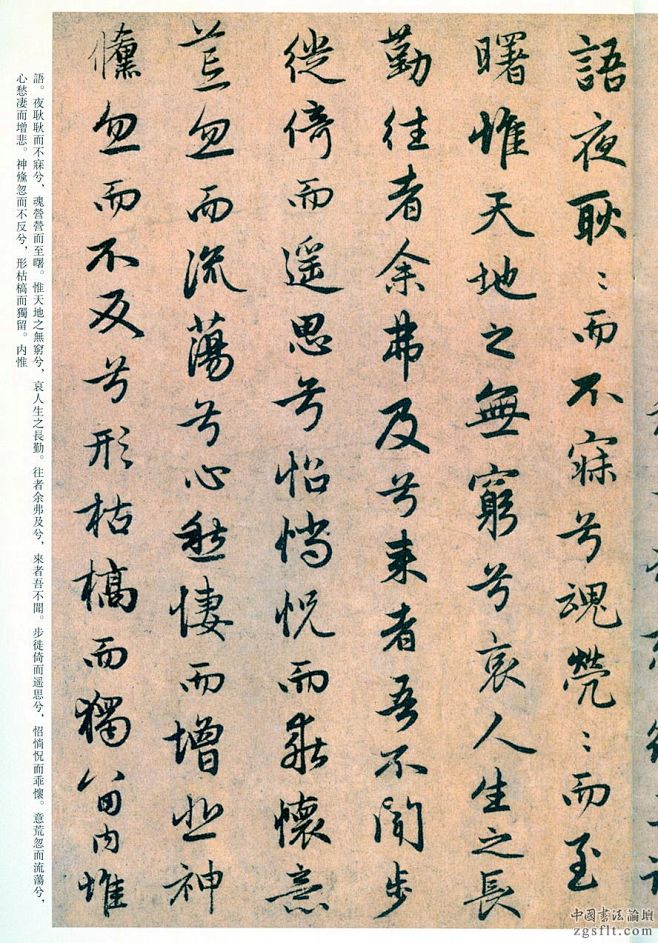 語夜耿〻而不寐兮魂煢〻而至
曙惟天地之無窮兮哀人生之長
勤往者余弗及兮来者吾不聞步
徙倚而遥思兮怊惝怳而乖懷意
荒忽而流蕩兮心愁悽而增悲神
儵忽而不反兮形枯槁而獨留内惟
語。夜耿耿而不寐兮，魂營營而至曙。惟天地之無窮兮，哀人生之長勤。往者余弗及兮，來者吾不聞。步徙倚而遥思兮，怊惝怳而乖懷。意荒忽而流蕩兮，
心愁凄而增悲。神儵忽而不反兮，形枯槁而獨留。内惟
中國書法論壇
zgsflt.com